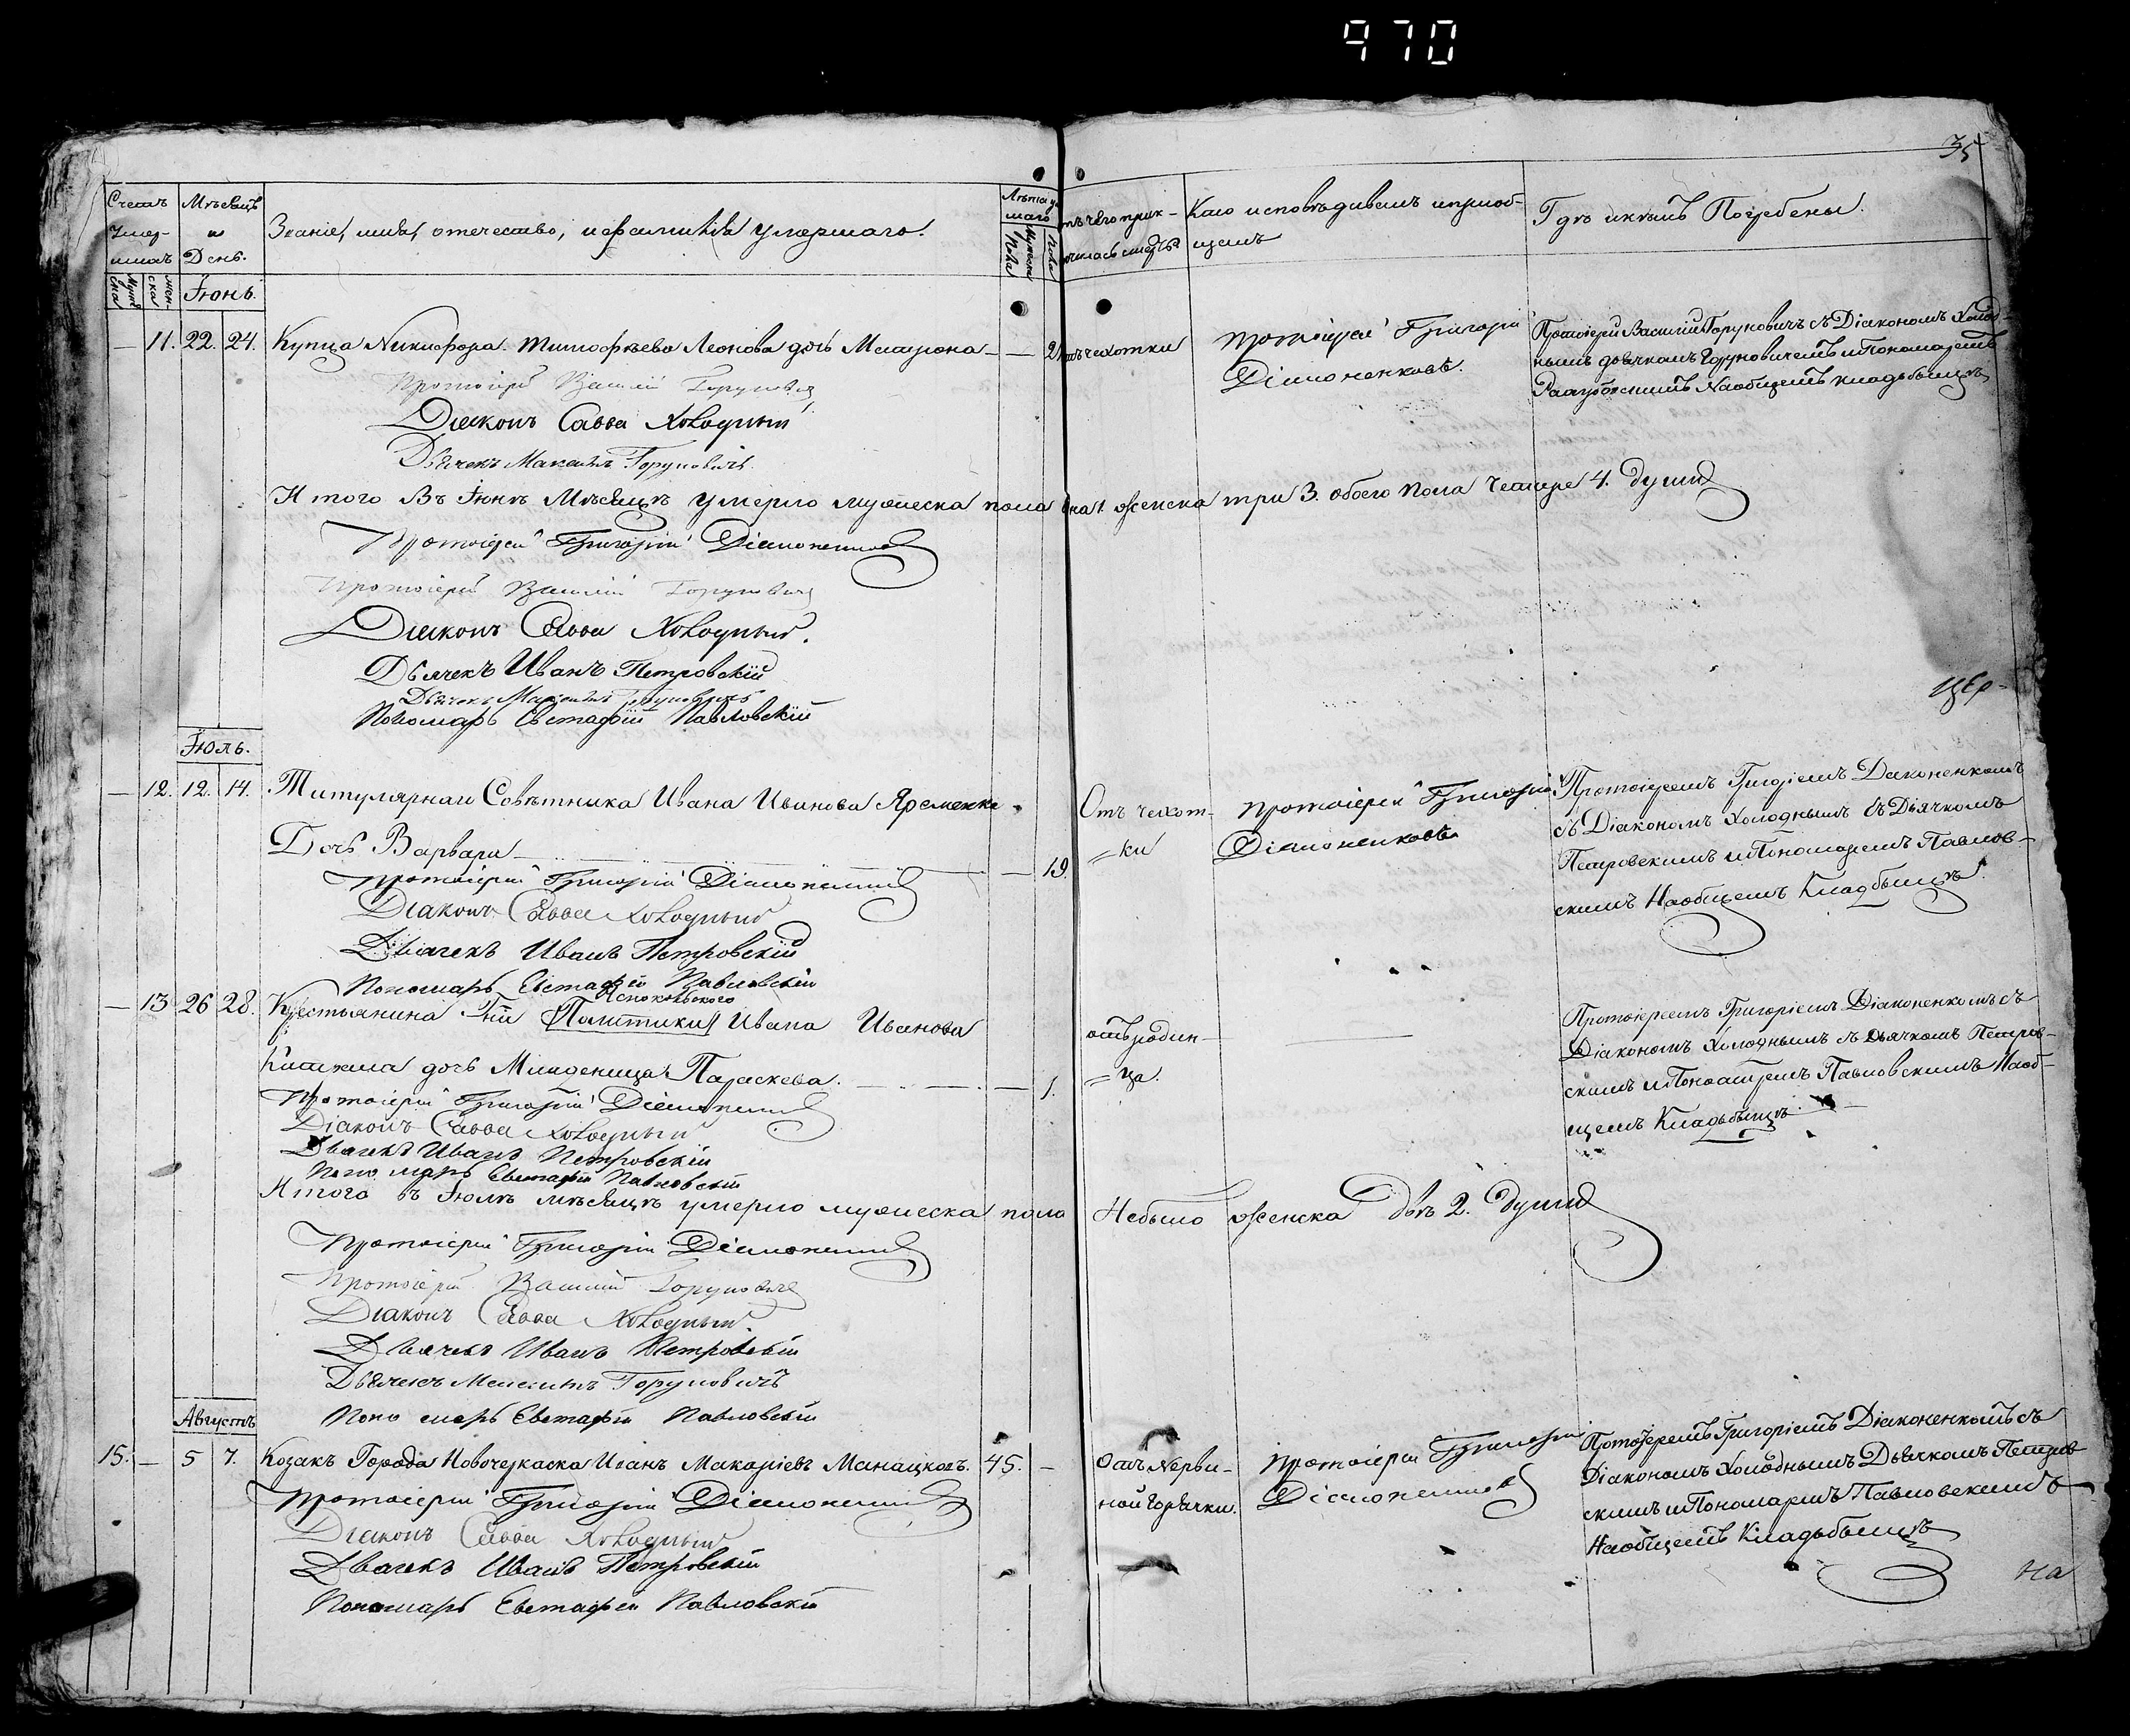 970
35
Счетъ умер-шихъ
Мѣсяцъ и День.
Званіе, имя, отечество, и фамилія умершаго.
Лѣта
Мужеска Пола
отъ чего приключилась смерть
Кто исповѣдивалъ и приобщилъ
Гдѣ и кѣмъ Погребены.
Мужеска
женска
Іюнь.
— 11. 22. 24. Купца Никифора Тимофѣева Леонова дочь — — 2
чехотки
Протоіерей Григорій
Діяконенковъ.
Протоіерей Василій Горуновичь съ Діакономъ Холод-
нымъ дьячкомъ Горуновичемъ и Пономаремъ
Наобщемъ кладьбыщѣ
Протоіерей Василій Горуновичь
Діяконъ Савва Холодный
Дьячекъ Максимъ Горуновичь
Итого Въ Іюнѣ Мѣсяцѣ умерло мужеска пола 1. женска три 3. обоего пола Четыре 4. души
Протоіерей Григорій Діяконенковъ
Протоіерей Василій Горуновичь
Діяконъ Савва Холодный.
Дьячекъ Иванъ Петровскій
Дьячекъ Максимъ Горуновичь
Пономарь Евстафій Павловскій
цер-
Іюль.
— 12. 12. 14. Титулярнаго Совѣтника Ивана Иванова Яременко
Дочь Варвара — 19.
Отъ чехот-
ки
Протоіерей Григорій
Діяконенковъ
Протоіереемъ Григоріемъ Діаконенкомъ
съ Діакономъ Холоднымъ съ Дьячкомъ
Петровскимъ и Пономаремъ Павлов-
скимъ Наобщемъ Кладбыщѣ.
Протоіерей Григорій Діяконенковъ
Діаконъ Савва Холодный
Дьячекъ Иванъ Петровскій
Пономарь Евстафій Павловскій
— 13 26 28. Крестьянина Ивана Иванова
дочь Младеница Параскева. — 1.
отъ родин-
ца.
Протоіереемъ Григоріемъ Діаконенкомъ съ
Діакономъ Холоднымъ съ Дьячкомъ Петров-
скимъ и Пономаремъ Павловскимъ Наоб-
щемъ Кладьбыщѣ.
Протоіерей Григорій Діяконенковъ
Діаконъ Савва Холодный
Дьячекъ Иванъ Петровскій
Пономарь Евстафій Павловскій
Итого въ Іюлѣ мѣсяцѣ умерло мужеска пола Небыло женска двѣ 2. души
Протоіерей Григорій Діяконенковъ
Протоіерей Василій Горуновичь
Діаконъ Савва Холодный.
Дьячекъ Иванъ Петровскій
Дьячекъ Максимъ Горуновичь
Пономарь Евстафій Павловскій
Августъ
15. — 5 7. Козакъ Города Новочеркаска Иванъ Макаріевъ Манацковъ. 45. —
Отъ Нерви-
ной Горячки.
Протоіерей Григорій
Діяконенковъ
Протоіереемъ Григоріемъ Діаконенкомъ съ
Діакономъ Холоднымъ Дьячкомъ Петров-
скимъ и Пономаремъ Павловскимъ
Наобщемъ Кладьбыщѣ
Протоіерей Григорій Діяконенковъ
Діаконъ Савва Холодный
Дьячекъ Иванъ Петровскій
Пономарь Евстафій Павловскій
На